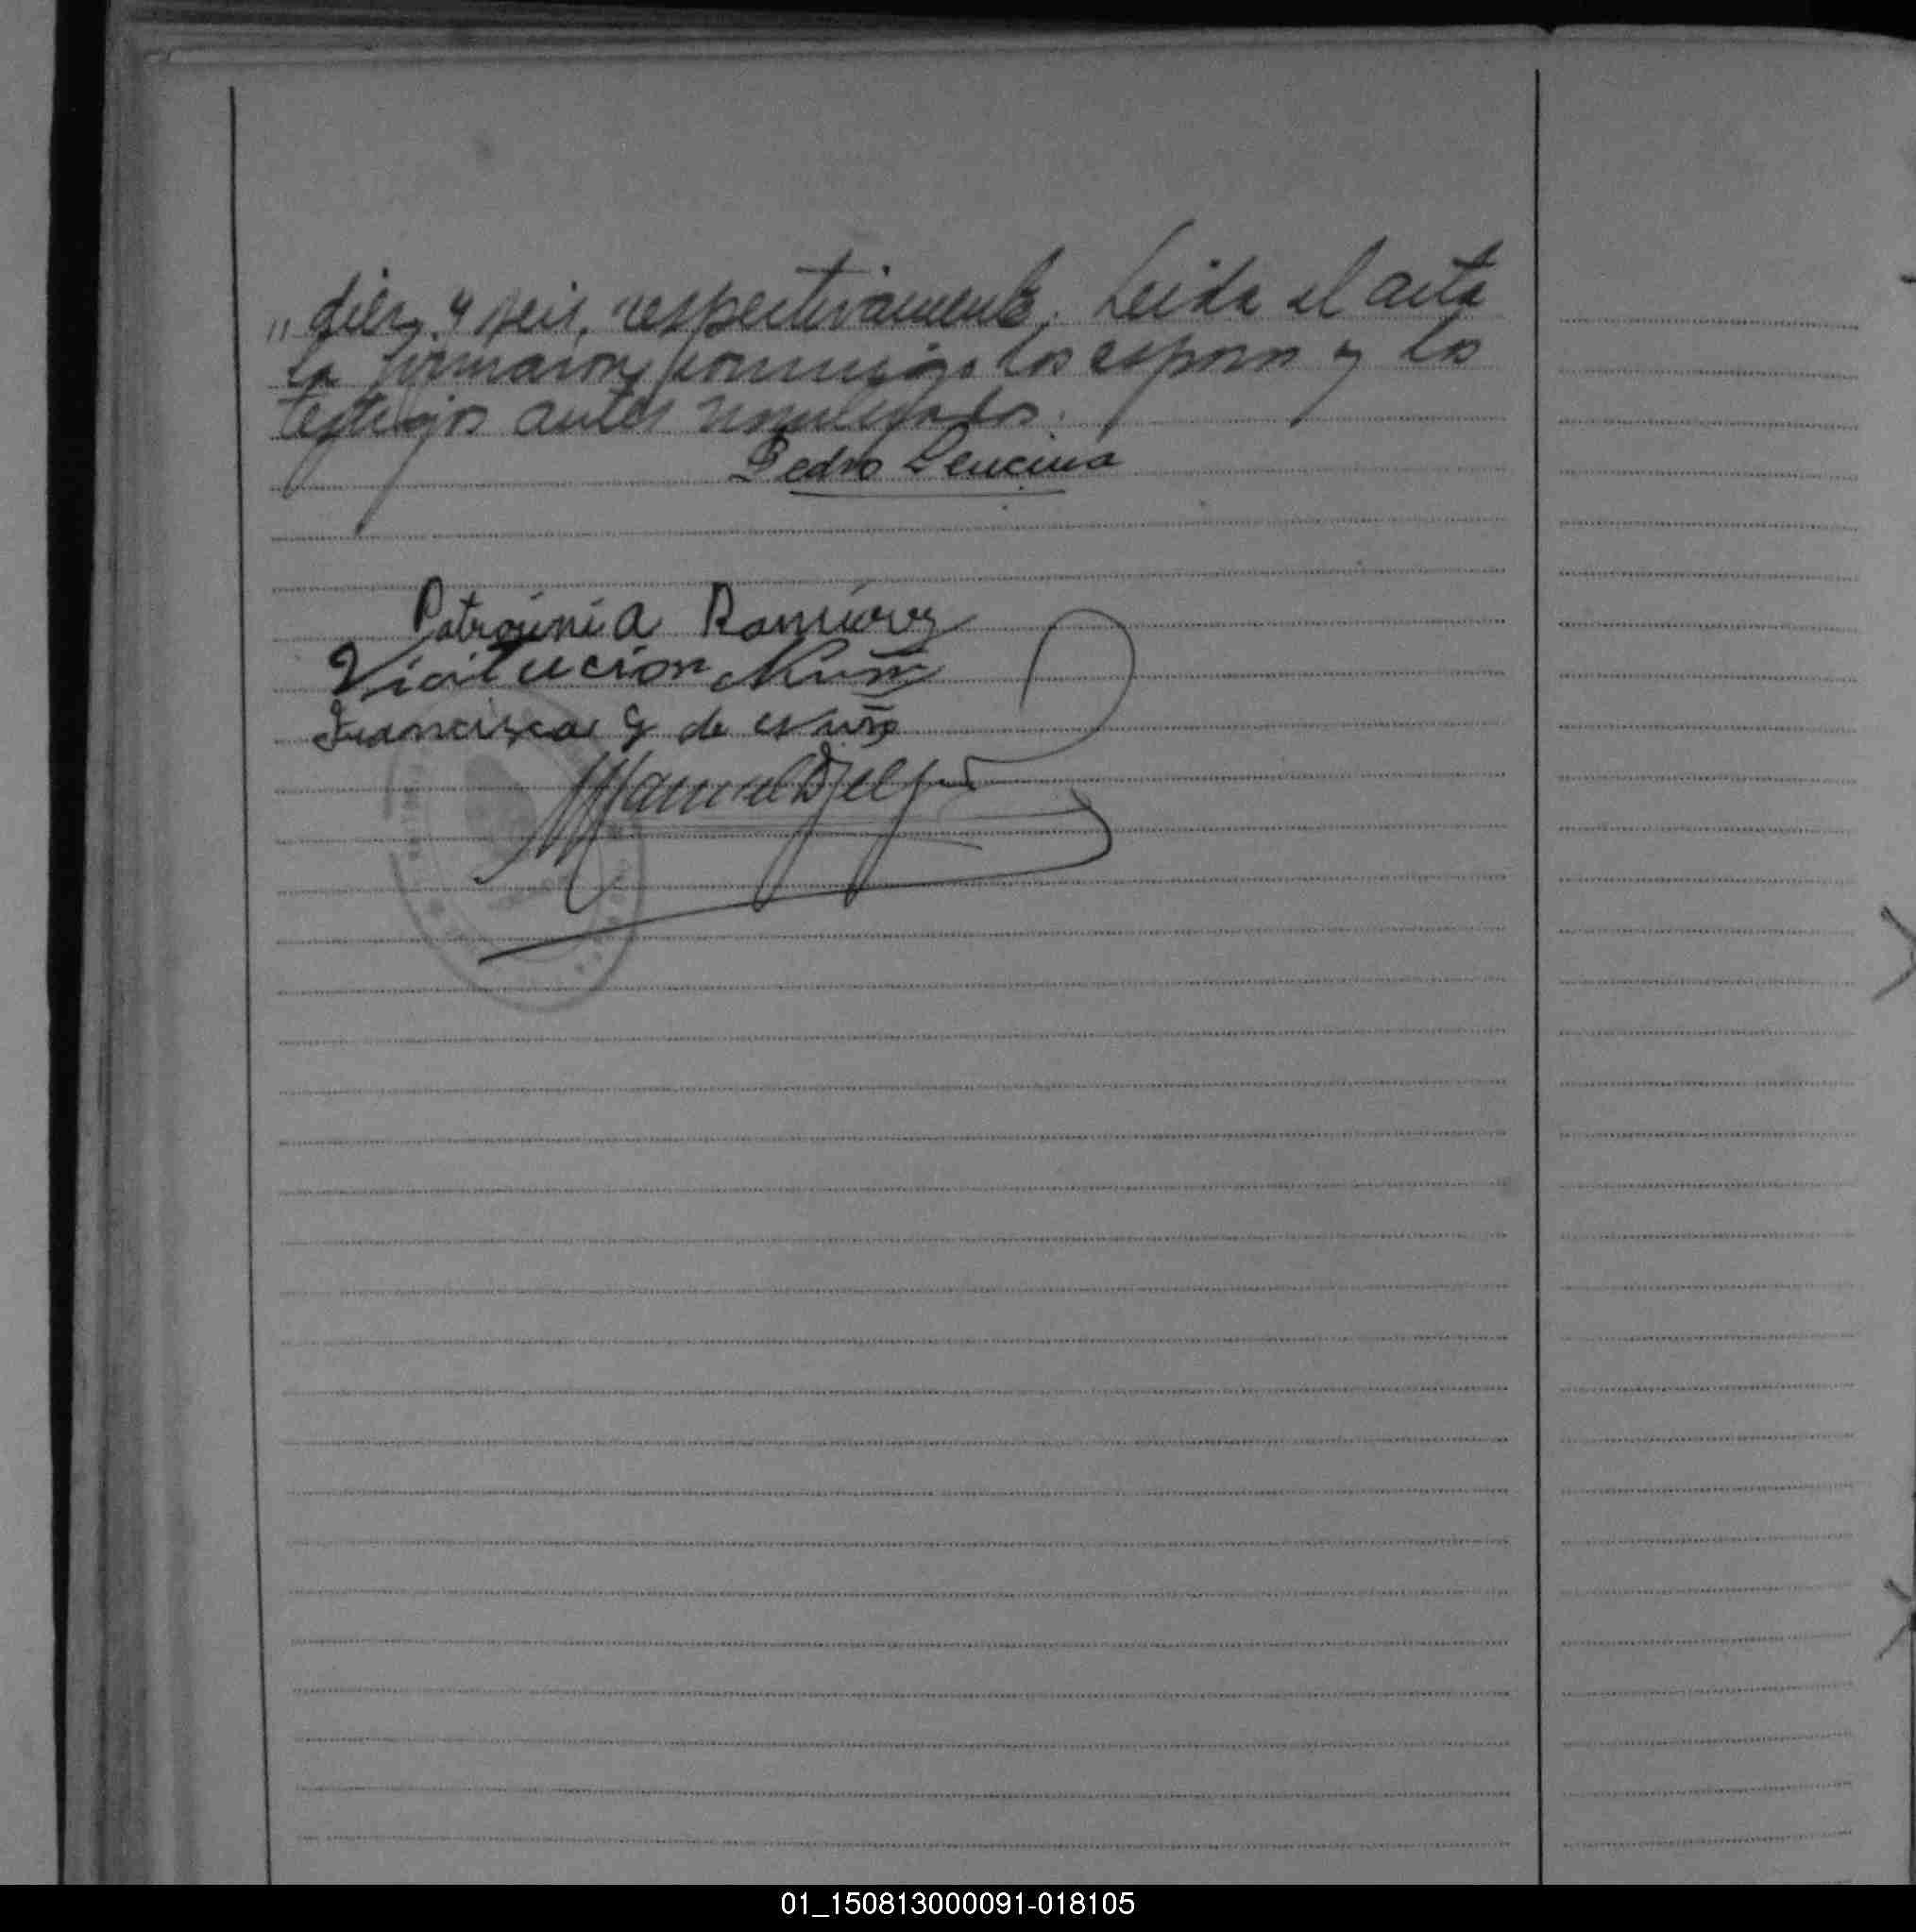 " diez y seis, respectivamente. Leida el acta
la firmaron conmigo los esposos y los
testigos antes nombrados.
Pedro Lencina
Patrosinia Ramirez
Visitacion Nuñ
Francisca G de Nuñe
Manuel Delg
01_150813000091-018105